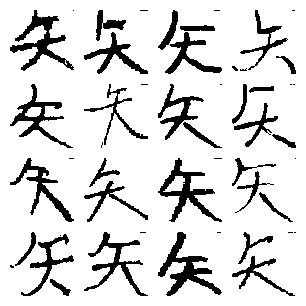 矢矢矢矢
矢矢矢矢
矢矢矢矢
矢矢矢矢